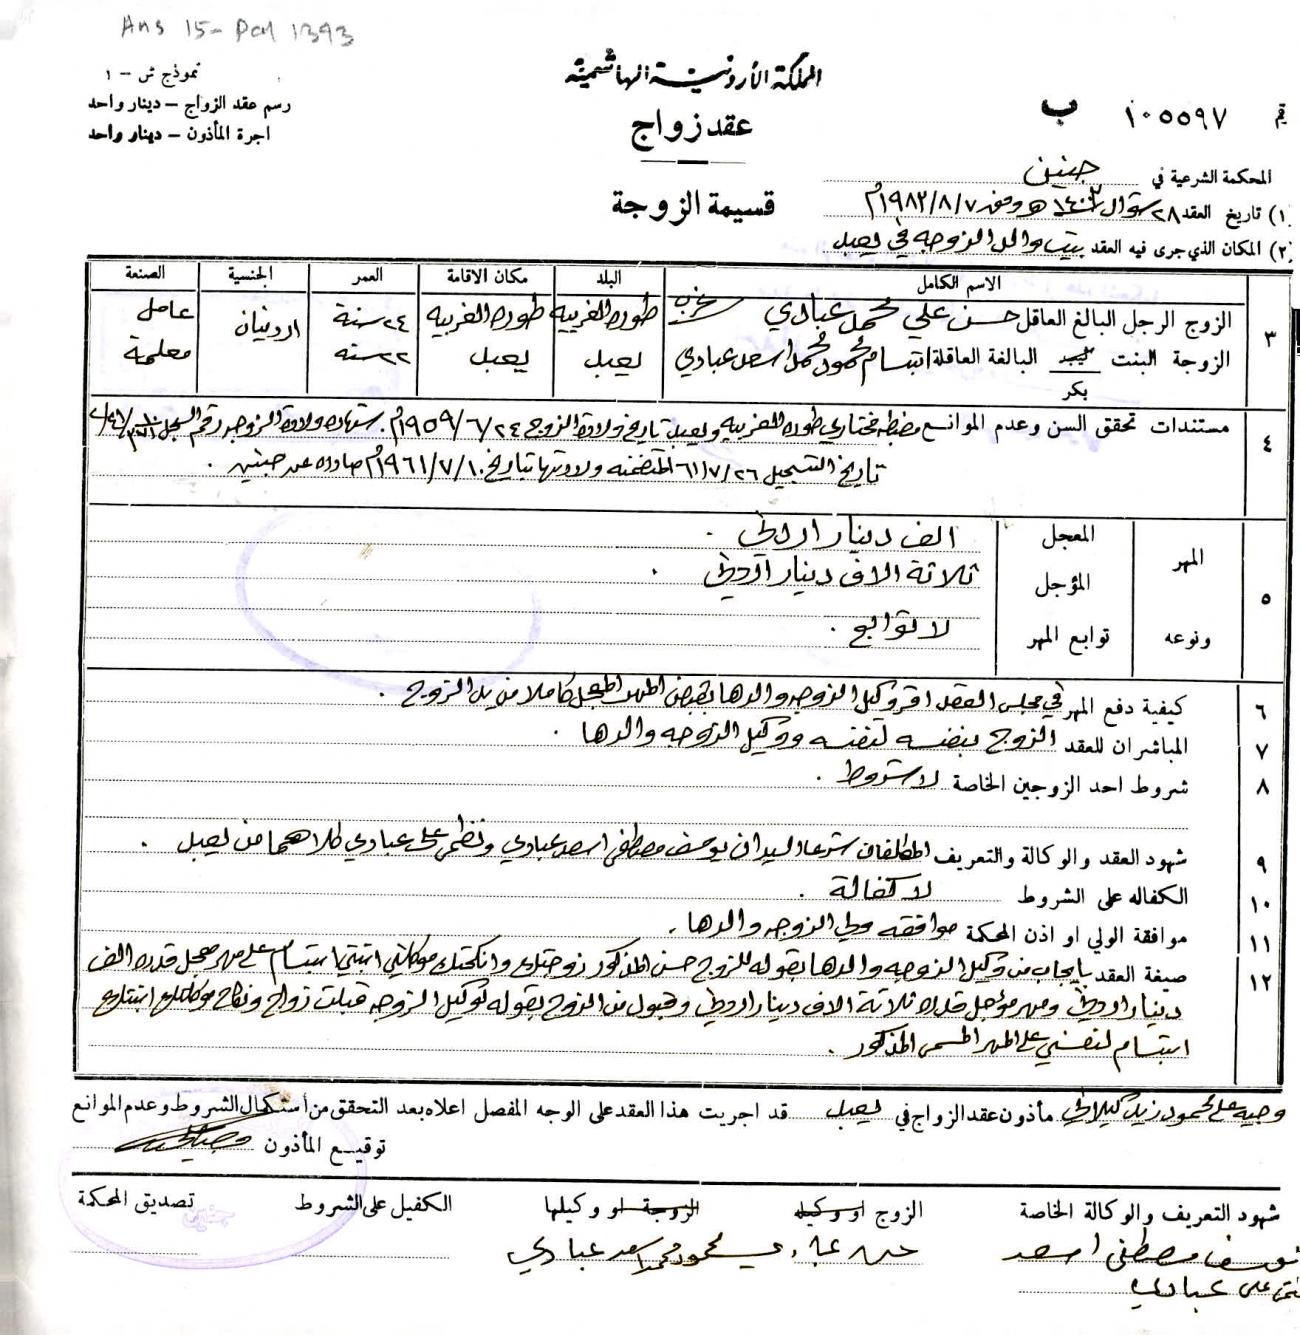 Ans 15- pcn 1393
المملكة الأردنية الهاشمية
نموذج ش - ١
رسم عقد الزواج - دينار واحد
اجرة المأذون - دينار واحد
رقم ١٠٥٥٩٧ ب
عقد زواج
المحكمة الشرعية في جنين
قسيمة الزوجة
١) تاريخ العقد ٢٨ شوال ١٤٠٢ هـ وفق ١٩٨٢/٨/٧م
٢) المكان الذي جرى فيه العقد بيت والد الزوجه في يعبد
الاسم الكامل البلد مكان الاقامة العمر الجنسية الصنعة
٣ الزوج الرجل البالغ العاقل حسن علي محمد عبادي عزب طوره الغربيه طوره الغربيه ٢٤ سنة اردنيان عامل
الزوجة البنت ثيب البالغة العاقلة ابتسام محمود محمد اسعد عبادي يعبد يعبد ٢٢ سنه معلمة
بكر
٤ مستندات تحقق السن وعدم الموانع مضبطه مختاري طوره الغربيه ويعبد تاريخ ولادة الزوج ١٩٥٩/٦/٢٤م. شهاده ولادة الزوجه رقم السجل
تاريخ التسجيل ٦١/٧/٢٦ المتضمنه ولادتها بتاريخ ١٩٦١/٧/١٠م صادره عن جنين .
٥ المهر ونوعه
المعجل الف دينار اردني .
المؤجل ثلاثة الاف دينار اردني .
توابع المهر لا توابع .
٦ كيفية دفع المهر في مجلس العقد اقر وكيل الزوجه والدها بقبض المهر المعجل كاملا من يد الزوج .
٧ المباشران للعقد الزوج بنفسه لنفسه ووكيل الزوجه والدها .
٨ شروط احد الزوجين الخاصة لا شروط .
٩ شهود العقد والوكالة والتعريف المكلفان شرعا السيدان يوسف مصطفى اسعد عبادي ونظمي علي عبادي كلاهما من يعبد .
١٠ الكفاله على الشروط لا كفالة .
١١ موافقة الولي او اذن المحكمة موافقه ولي الزوجه والدها .
١٢ صيغة العقد بايجاب من وكيل الزوجه والدها بقوله للزوج حسن المذكور زوجتك وانكحتك موكلتي ابنتي ابتسام على مهر معجل قدره الف
دينار اردني ومهر مؤجل قدره ثلاثة الاف دينار اردني وقبول من الزوج بقوله لوكيل الزوجه قبلت زواج ونكاح موكلتك ابنتك
ابتسام لنفسي على المهر المسمى المذكور .
وجيه علي محمود زيد كيلاني مأذون عقد الزواج في يعبد قد اجريت هذا العقد على الوجه المفصل اعلاه بعد التحقق من أستكمال الشروط وعدم الموانع
توقيع المأذون
شهود التعريف والوكالة الخاصة الزوج او وكيله الزوجة او وكيلها الكفيل على الشروط تصديق المحكمة
يوسف مصطفى اسعد حسن عبادي محمود محمد اسعد عبادي
علي عبادي
جنين